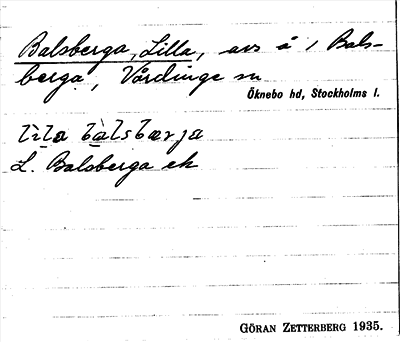 Balsberga, Lilla, avs å 1 Bals-
berga, Vårdinge sn
Öknebo hd, Stockholms l.
lila balsbærja
L. Balsberga ek
GÖRAN ZETTERBERG 1935.